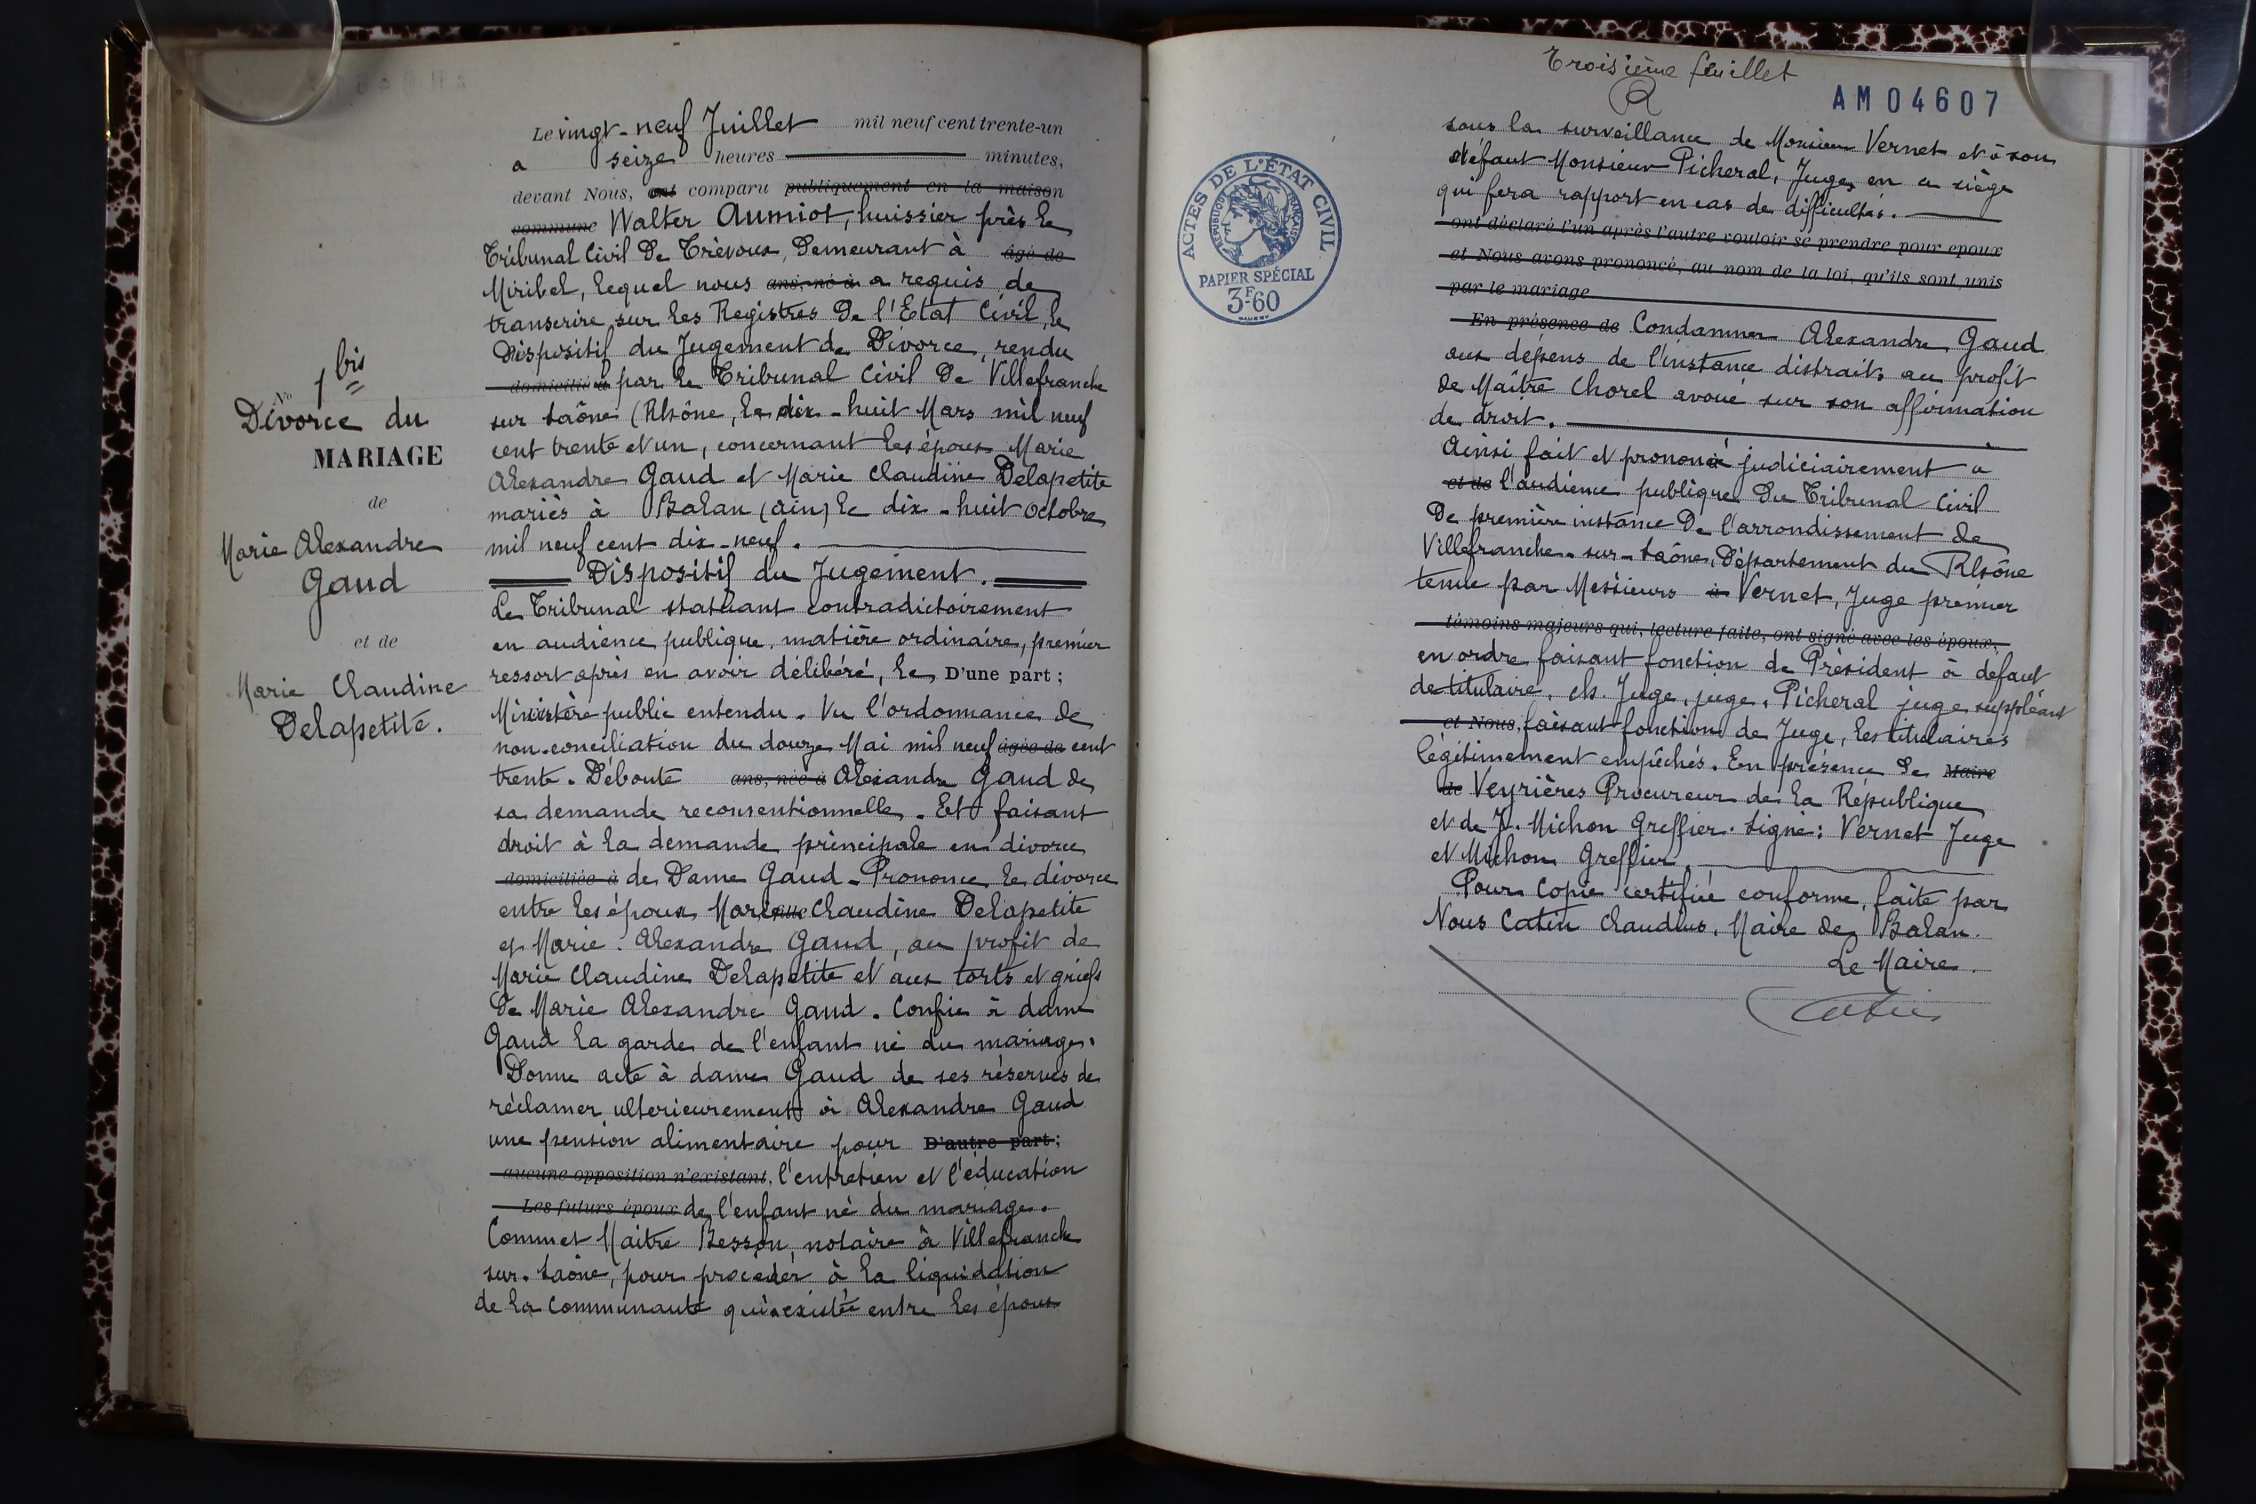 Le vingt-neuf Juillet mil neuf cent trente-un
a seize heures minutes,
devant Nous, ont comparu publiquement en la maison
commune Walter Aumiot, huissier près le
Tribunal Civil De Trévoux, Demeurant à âgé de
Miribel, lequel nous ans, né à a requis de
transcrire sur les Registres De l'Etat Civil, le
Dispositif du Jugement de Divorce, rendu
domicilié à par le Tribunal Civil De Villefranche
sur Saône (Rhône, le dix-huit Mars mil neuf
cent trente et un, concernant les époux Marie
Alexandre Gaud et Marie Claudine Delapetite
mariés à Balan (Ain) le dix-huit Octobre
mil neuf cent dix-neuf.
Dispositif du Jugement.
Le Tribunal statuant contradictoirement
en audience publique, matière ordinaire, premier
ressort après en avoir délibéré, le D'une part ;
Ministère public entendu. Vu l'ordonnance de
non-conciliation du douze Mai mil neuf âgée de cent
trente. Déboute ans, née à Alexandre Gaud de
sa demande reconventionnelle. Et faisant
droit à la demande principale en divorce
domiciliée à de Dame Gaud - Prononce le divorce
entre les époux Marie fille Claudine Delapetite
et Marie Alexandre Gaud, au profit de
Marie Claudine Delapetite et aux torts et griefs
De Marie Alexandre Gaud. Confie à dame
Gaud la garde de l'enfant né du mariage.
Donne acte à dame Gaud de ses réserves de
réclamer ulterieurement à Alexandre Gaud
une pension alimentaire pour D'autre part ;
aucune opposition n'existant, l'entretien et l'éducation
Les futurs époux de l'enfant né du mariage.
Commet Maitre Besson, notaire à Villefranche
sur-Saône, pour procéder à la liquidation
de la Communauté qui a existé entre les époux
No 1 bis
Divorce du
MARIAGE
de
Marie Alexandre
Gaud
et de
Marie Claudine
Delapetite.
Troisième feuillet
AM04607
ACTES DE L'ÉTAT CIVIL
RÉPUBLIQUE FRANÇAISE
PAPIER SPÉCIAL
3F60
sous la surveillance de Monsieur Vernet et à son
défaut Monsieur Picheral, Juges en ce siège
qui fera rapport en cas de difficultés.
ont déclaré l'un après l'autre vouloir se prendre pour époux
et Nous avons prononcé, au nom de la loi, qu'ils sont unis
par le mariage
En présence de Condamner Alexandre Gaud
aux dépens de l'instance distraits au profit
de Maître Chorel avoué sur son affirmation
de droit.
Ainsi fait et prononcé judiciairement à
et de l'audience publique Du Tribunal Civil
De première instance De l'arrondissement de
Villefranche-sur-Saône, Département du Rhône
tenue par Messieurs à Vernet, Juge premier
témoins majeurs qui, lecture faite, ont signé avec les époux,
en ordre faisant fonction de Président à defaut
de titulaire, ch. Juge, juge, Picheral juge suppléant
et Nous, faisant fonction de Juge, les titulaires
légitimement empêchés. En présence de Maire
de Veyrières Procureur de la République
et de J. Michon Greffier. Signé : Vernet Juge
et Michon Greffier.
Pour Copie certifiée conforme, faite par
Nous Catin Claudius, Maire de Balan.
Le Maire.
Catin